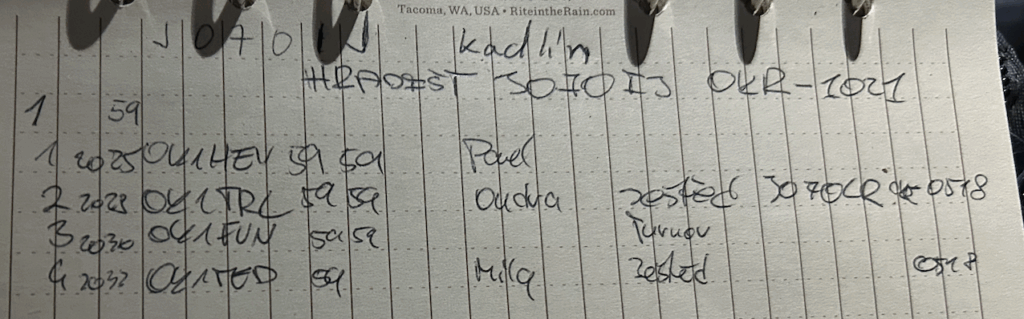 Tacoma, WA, USA • RiteintheRain.com
JO70IJ Kadlín
HRADIST JO70IJ OKR-1021
1 59
1 2025 OK1HEV 59 59 Pavel
2 2029 OK1TRL 59 59 Ondra zested JO70CR OKR-0518
3 2030 OK1FUN 59 59 Turnov
4 2032 OK1TED 59 Mila zested 0518